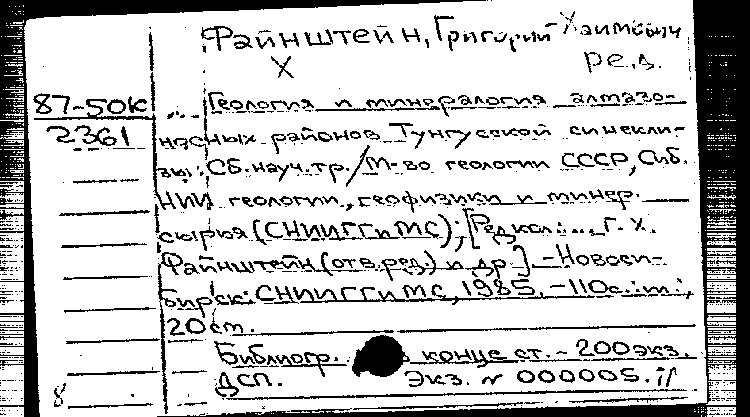 Файнштейн, Григорий Хаимович
X ред.
87-50к
2361
... Геология и минералогия алмазо-
носных районов Тунгусской синекли-
зы: Сб. науч. тр. / М-во геологии СССР, Сиб.
НИИ геологии, геофизики и минер.
сырья (СНИИГГиМС); [Редкол.: ..., Г. Х.
Файнштейн (отв. ред.) и др.]. - Новоси-
бирск: СНИИГГиМС, 1985. - 110 с.: ил.;
20 см.
Библиогр. в конце ст. - 200 экз.
ДСП. Экз. № 000005.
8